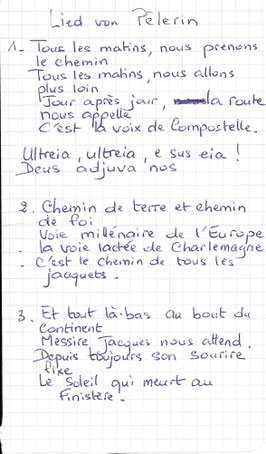 Lied von Pèlerin
1- Tous les matins, nous prenons
le chemin
Tous les matins, nous allons
plus loin
Jour après jour, la route
nous appelle
C'est la voix de Compostelle.
Ultreia, ultreia, e sus eia !
Deus adjuva nos
2. Chemin de terre et chemin
de foi
Voie millénaire de l'Europe
. la voie lactée de Charlemagne
. C'est le chemin de tous les
jacquets.
3. Et tout là-bas au bout du
Continent
Messire Jacques nous attend,
Depuis toujours son sourire
fixe
Le Soleil qui meurt au
Finistère.